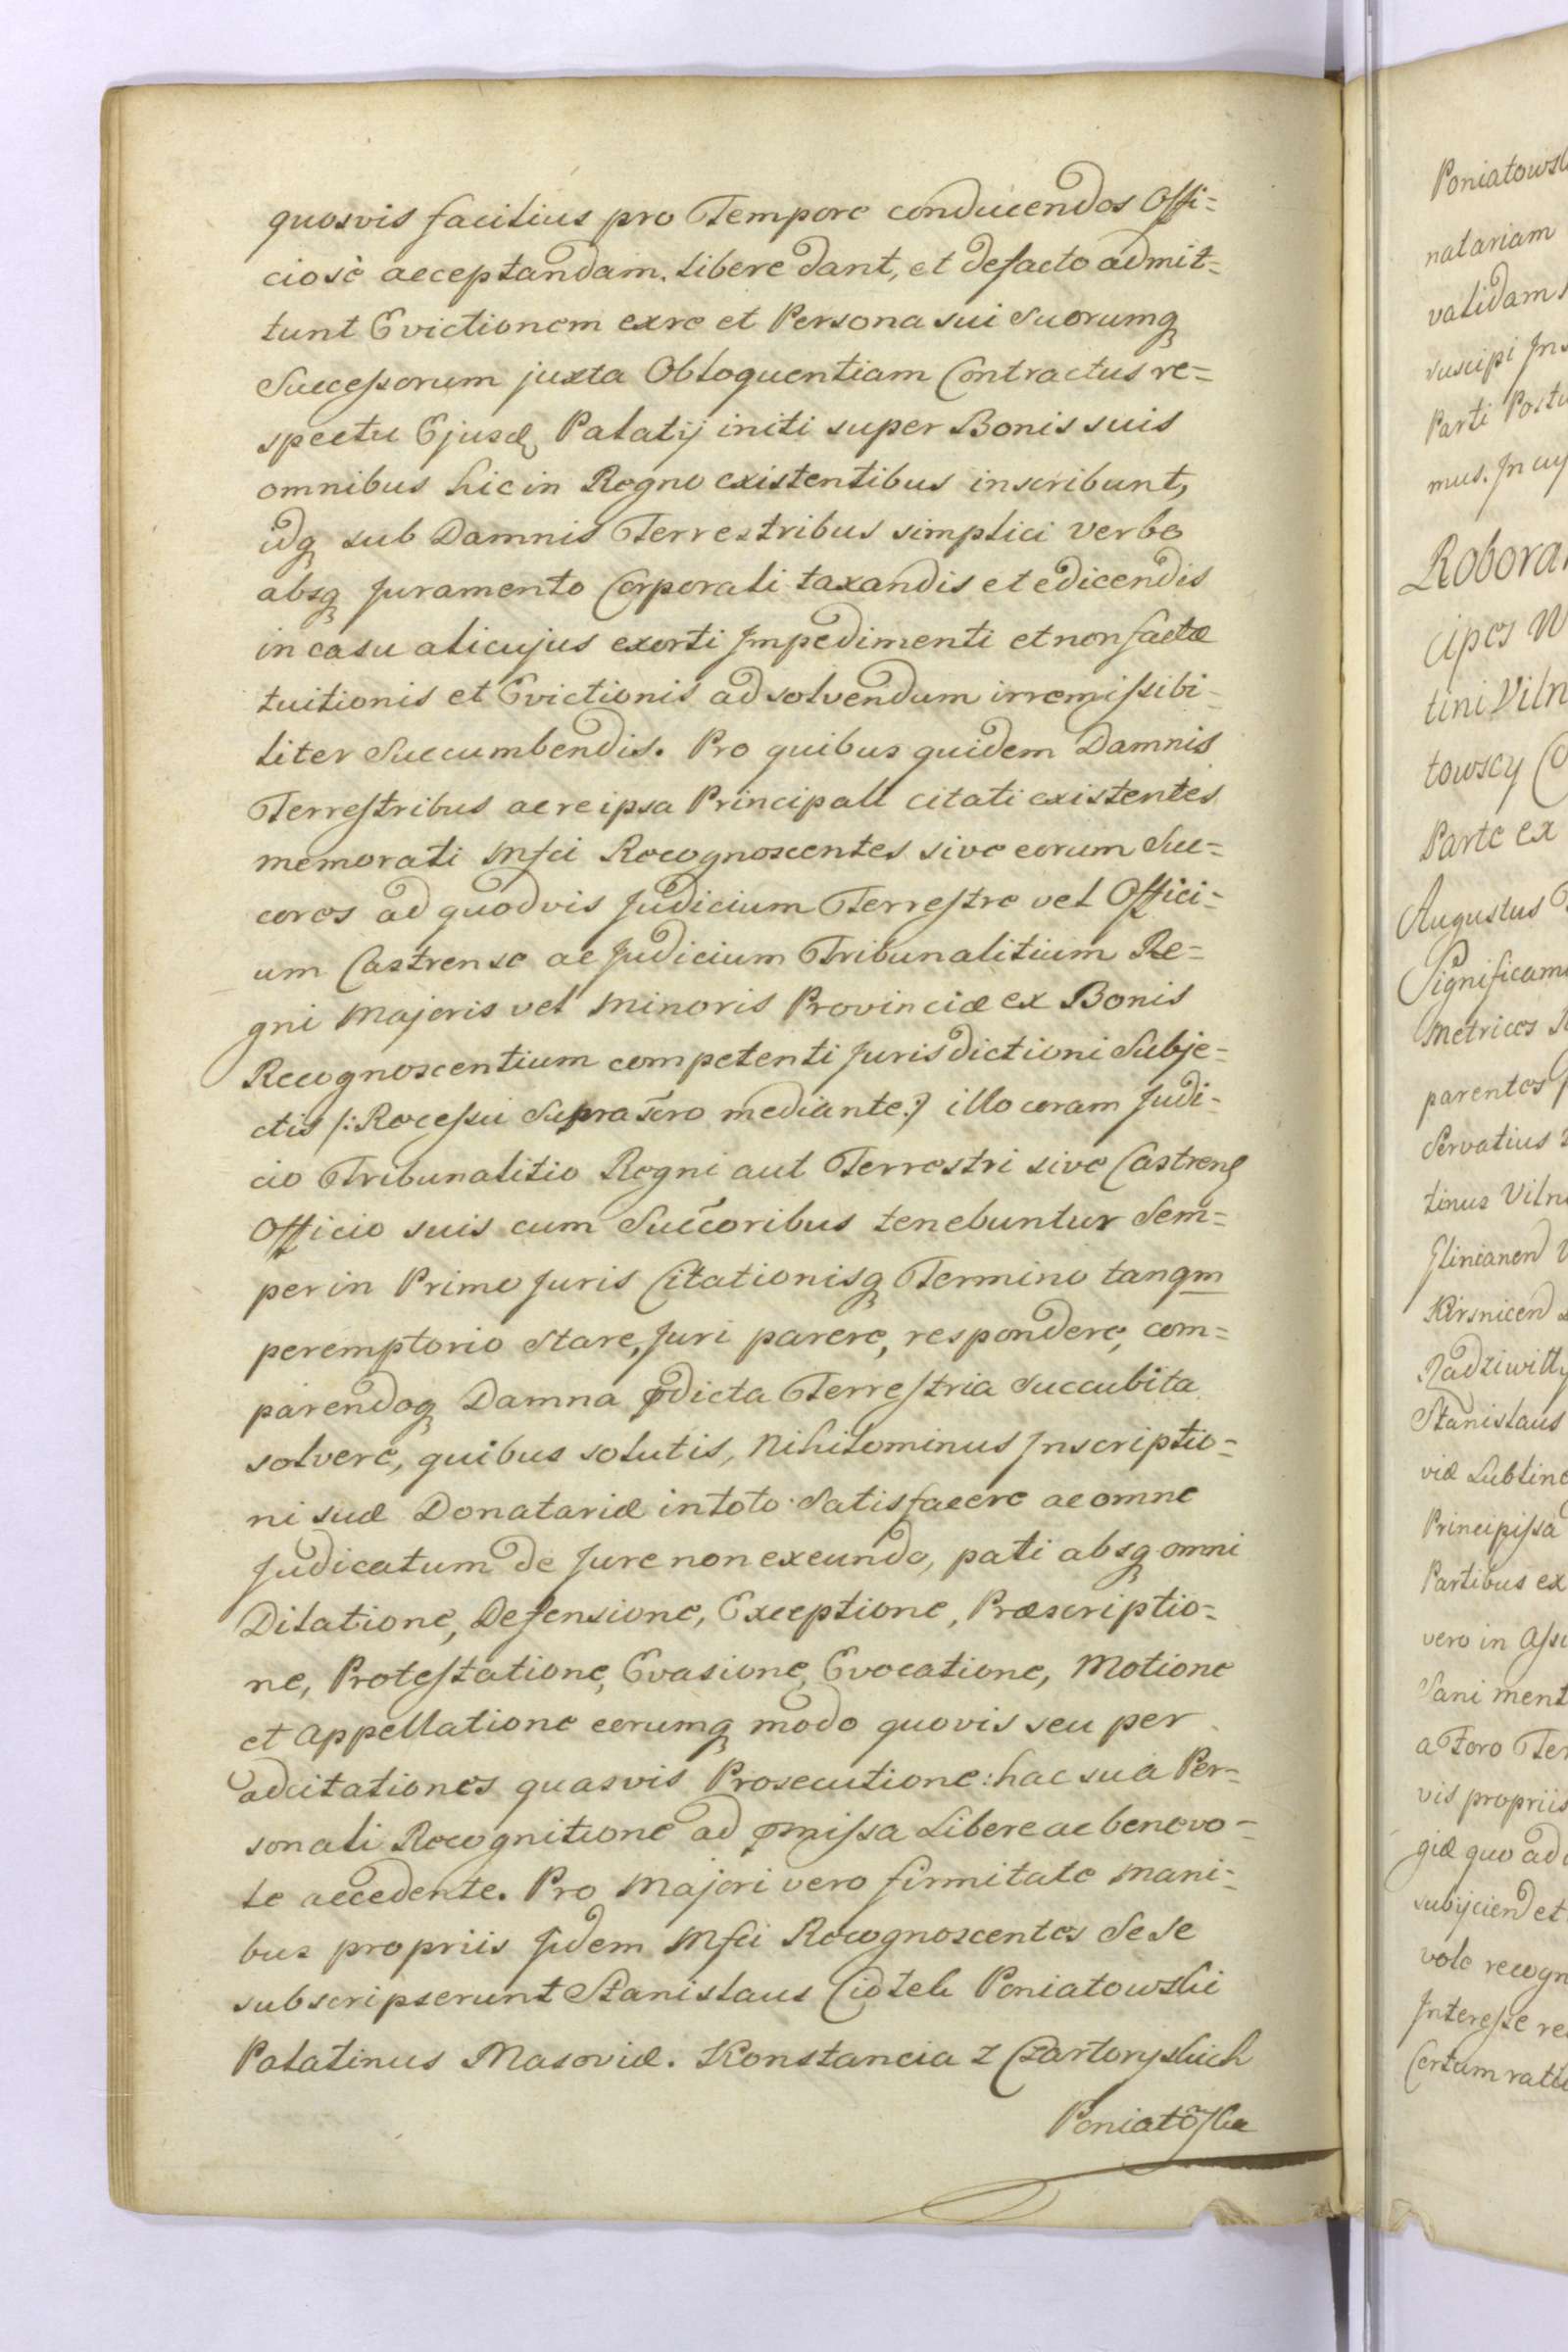 quosvis facilius pro Tempore conducendos Offi=
ciosè acceptandam. Libere dant, et defacto admit=
tunt Evictionem exre et Persona sui Suorumq
Successorum juxta Obloquentiam Contractus re=
spectu Ejusd Palatij initi super Bonis suis
omnibus hic in Regno existentibus inscribunt,
idq sub Damnis Terrestribus simplici verbo
absq Juramento Corporali taxandis et edicendis
in casu alicujus exorti Impedimenti et non factæ
tuitionis et Evictionis ad solvendum irremissibi=
liter Succumbendis. Pro quibus quidem Damnis
Terrestribus ac re ipsa Principali citati existentes
memorati Mfci Recognoscentes sive eorum Suc=
cores ad quodvis Judicium Terrestre vel Offici=
um Castrense ac Judicium Tribunalitium Re=
gni Majoris vel Minoris Provinciæ ex Bonis
Recognoscentium competenti Jurisdictioni Subje=
ctis /: Recessu Suprascro mediante :/ illo coram Judi=
cio Tribunalitio Regni aut Terrestri sive Castren
Officio suis cum Succoribus tenebuntur Sem=
per in Primo Juris Citationisq Termino tanqm
peremptorio Stare, Juri parere, respondere, com=
parendoq Damna pdicta Terrestria Succubita
solvere, quibus solutis, Nihilominus Inscriptio=
ni suæ Donatariæ in toto Satisfacere ac omne
Judicatum de Jure non exeundo, pati absq omni
Dilatione, Defensione, Exceptione, Præscriptio=
ne, Protestatione, Evasione, Evocatione, Motione
et Appellatione eorumq modo quovis seu per
adcitationes quasvis Prosecutione: hac sua Per=
sonali Recognitione ad pmissa Libere ac benevo=
le accedente. Pro Majori vero firmitate Mani=
bus propriis Jidem Mfci Recognoscentes Sese
subscripserunt Stanislaus Ciołek Poniatowski
Palatinus Masoviæ. Konstancia z Czartoryskich
Poniatoska
Poniatows
natariam
validam
suscipi
Parti
mus. In
Robora
cipes
tini Viln
towscy
Parte ex
Augustus
Significam
Metrices
parentes
Servatius
tinus Viln
Kirsnicen
Radziwilly
Stanislaus
viæ Lubline
Principissa
Partibus ex
vero in
Sani ment
a Foro Ter
vis propriis
giæ quo ad
subijciend et
vole recogn
Interesse re
Certam